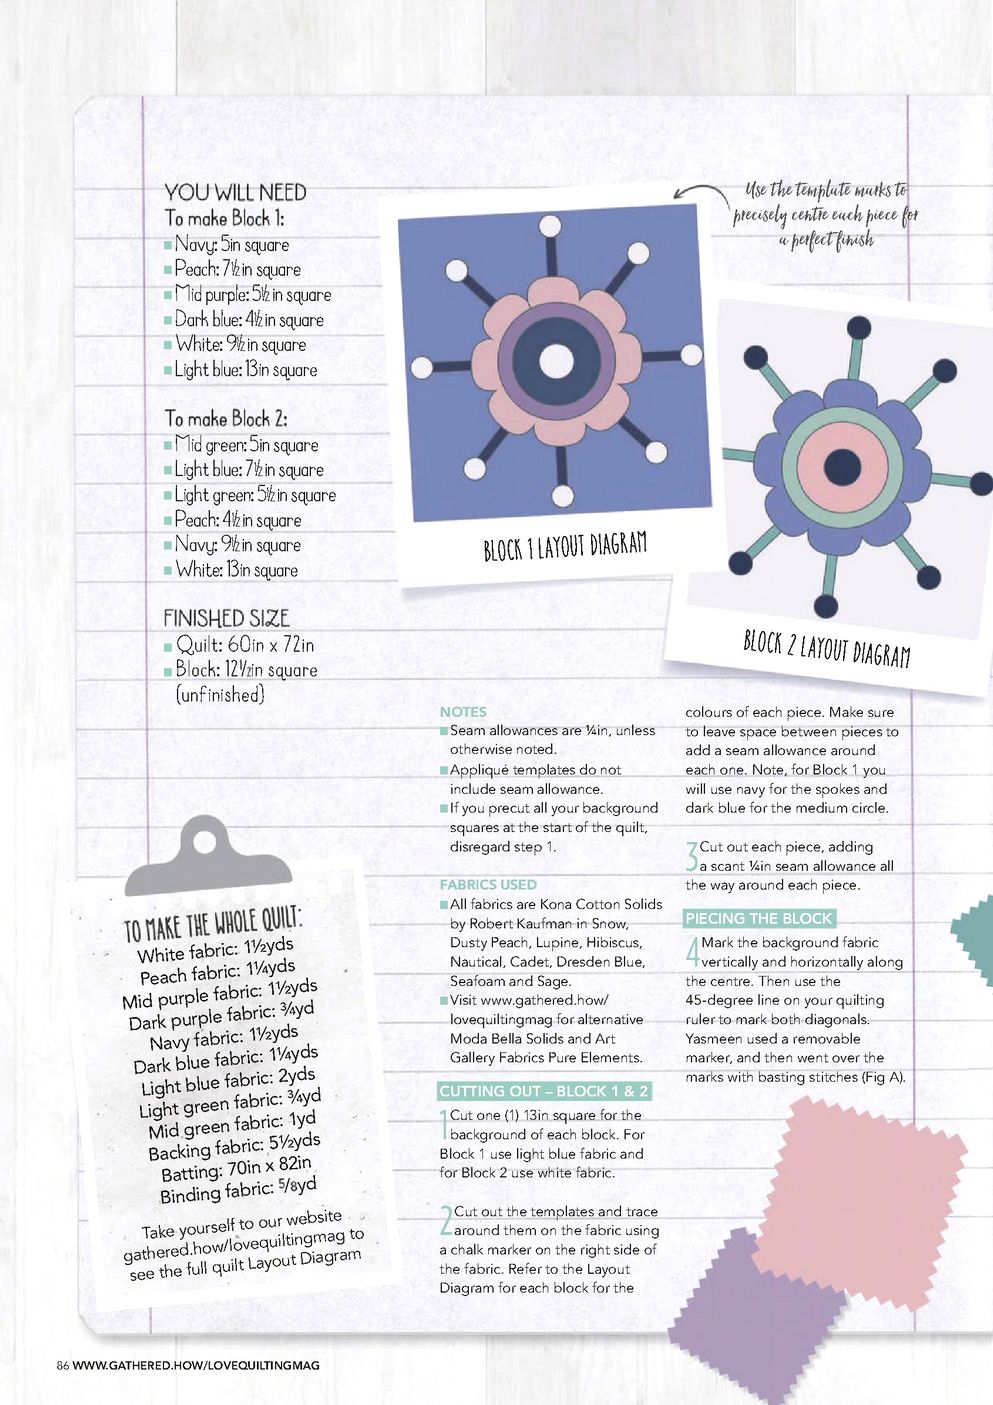 YOU WILL NEED
To make Block 1:
Navy: 5in square
Peach: 7½in square
Mid purple: 5½in square
Dark blue: 4½in square
White: 9½in square
Light blue: 13in square
To make Block 2:
Mid green: 5in square
Light blue: 7½in square
Light green: 5½in square
Peach: 4½in square
Navy: 9½in square
White: 13in square
FINISHED SIZE
Quilt: 60in x 72in
Block: 12½in square
(unfinished)
Use the template marks to
precisely centre each piece for
a perfect finish
BLOCK 1 LAYOUT DIAGRAM
BLOCK 2 LAYOUT DIAGRAM
TO MAKE THE WHOLE QUILT:
White fabric: 1½yds
Peach fabric: 1¼yds
Mid purple fabric: 1½yds
Dark purple fabric: ¾yd
Navy fabric: 1½yds
Dark blue fabric: 1¼yds
Light blue fabric: 2yds
Light green fabric: ¾yd
Mid green fabric: 1yd
Backing fabric: 5½yds
Batting: 70in x 82in
Binding fabric: ⅝yd
Take yourself to our website
gathered.how/lovequiltingmag to
see the full quilt Layout Diagram
NOTES
Seam allowances are ¼in, unless
otherwise noted.
Appliqué templates do not
include seam allowance.
If you precut all your background
squares at the start of the quilt,
disregard step 1.
FABRICS USED
All fabrics are Kona Cotton Solids
by Robert Kaufman in Snow,
Dusty Peach, Lupine, Hibiscus,
Nautical, Cadet, Dresden Blue,
Seafoam and Sage.
Visit www.gathered.how/
lovequiltingmag for alternative
Moda Bella Solids and Art
Gallery Fabrics Pure Elements.
CUTTING OUT – BLOCK 1 & 2
1 Cut one (1) 13in square for the
background of each block. For
Block 1 use light blue fabric and
for Block 2 use white fabric.
2 Cut out the templates and trace
around them on the fabric using
a chalk marker on the right side of
the fabric. Refer to the Layout
Diagram for each block for the
colours of each piece. Make sure
to leave space between pieces to
add a seam allowance around
each one. Note, for Block 1 you
will use navy for the spokes and
dark blue for the medium circle.
3 Cut out each piece, adding
a scant ¼in seam allowance all
the way around each piece.
PIECING THE BLOCK
4 Mark the background fabric
vertically and horizontally along
the centre. Then use the
45-degree line on your quilting
ruler to mark both diagonals.
Yasmeen used a removable
marker, and then went over the
marks with basting stitches (Fig A).
86 WWW.GATHERED.HOW/LOVEQUILTINGMAG